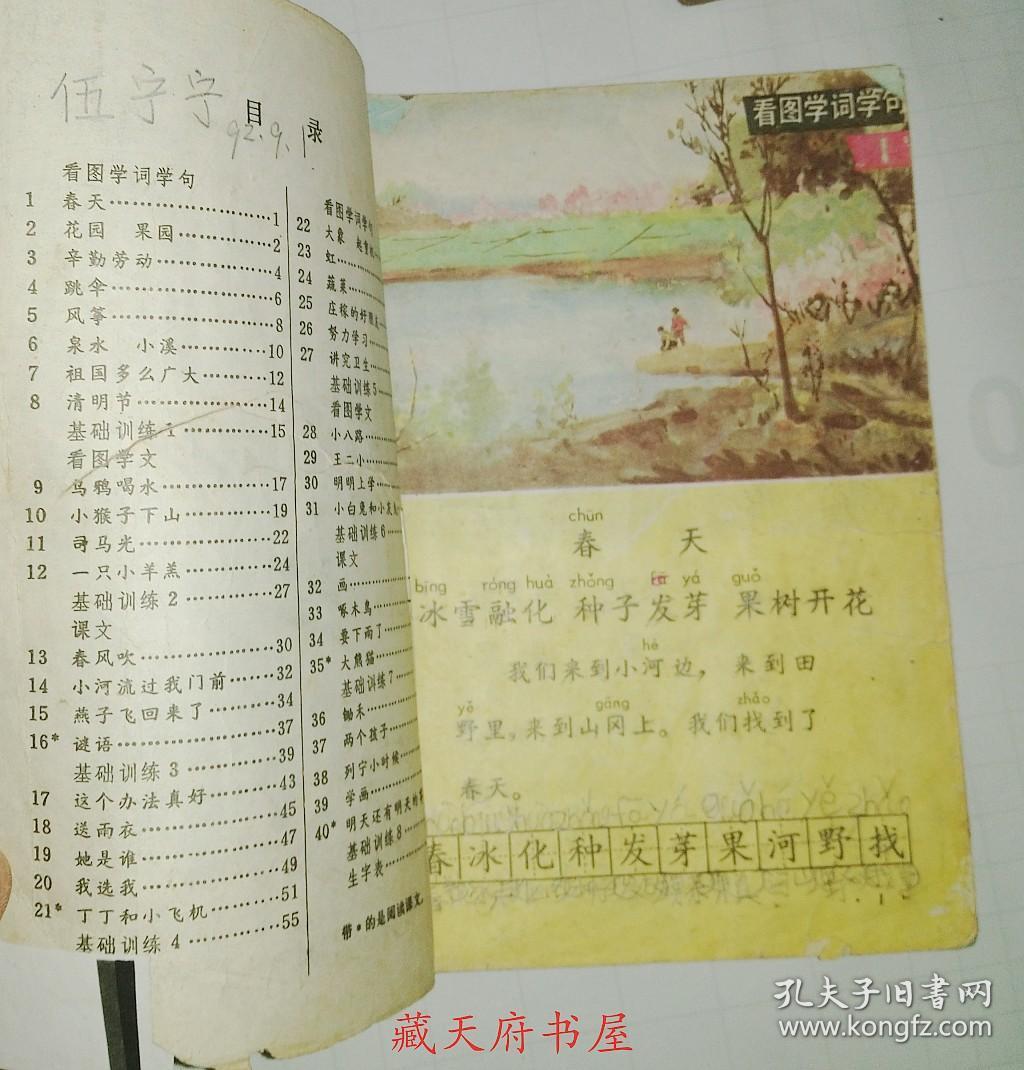 伍宁宁
目 录
92.9.1
看图学词学句
1 春天……………………1
2 花园 果园……………2
3 辛勤劳动………………4
4 跳伞……………………6
5 风筝……………………8
6 泉水 小溪……………10
7 祖国多么广大…………12
8 清明节…………………14
基础训练1……………15
看图学文
9 乌鸦喝水………………17
10 小猴子下山……………19
11 司马光…………………22
12 一只小羊羔……………24
基础训练2……………27
课文
13 春风吹…………………30
14 小河流过我门前………32
15 燕子飞回来了…………34
16* 谜语……………………37
基础训练3……………39
17 这个办法真好…………43
18 送雨衣…………………45
19 她是谁…………………47
20 我选我…………………49
21* 丁丁和小飞机…………51
基础训练4……………55
看图学词学句
22 大象 起重机
23 虹………
24 蔬菜………
25 庄稼的好朋友
26 努力学习………
27 讲究卫生………
基础训练5……
看图学文
28 小八路………
29 王二小………
30 明明上学………
31 小白兔和小灰兔
基础训练6……
课文
32 画………
33 啄木鸟………
34 要下雨了………
35* 大熊猫………
基础训练7……
36 锄禾………
37 两个孩子………
38 列宁小时候……
39 学画………
40* 明天还有明天的
基础训练8……
生字表………
带*的是阅读课文。
看图学词学句
1
chūn
春 天
bīng róng huà zhǒng fā yá guǒ
冰雪融化 种子发芽 果树开花
hé
我们来到小河边，来到田
yě gāng zhǎo
野里，来到山冈上。我们找到了
春天。
春冰化种发芽果河野找
孔夫子旧书网
www.kongfz.com
藏天府书屋